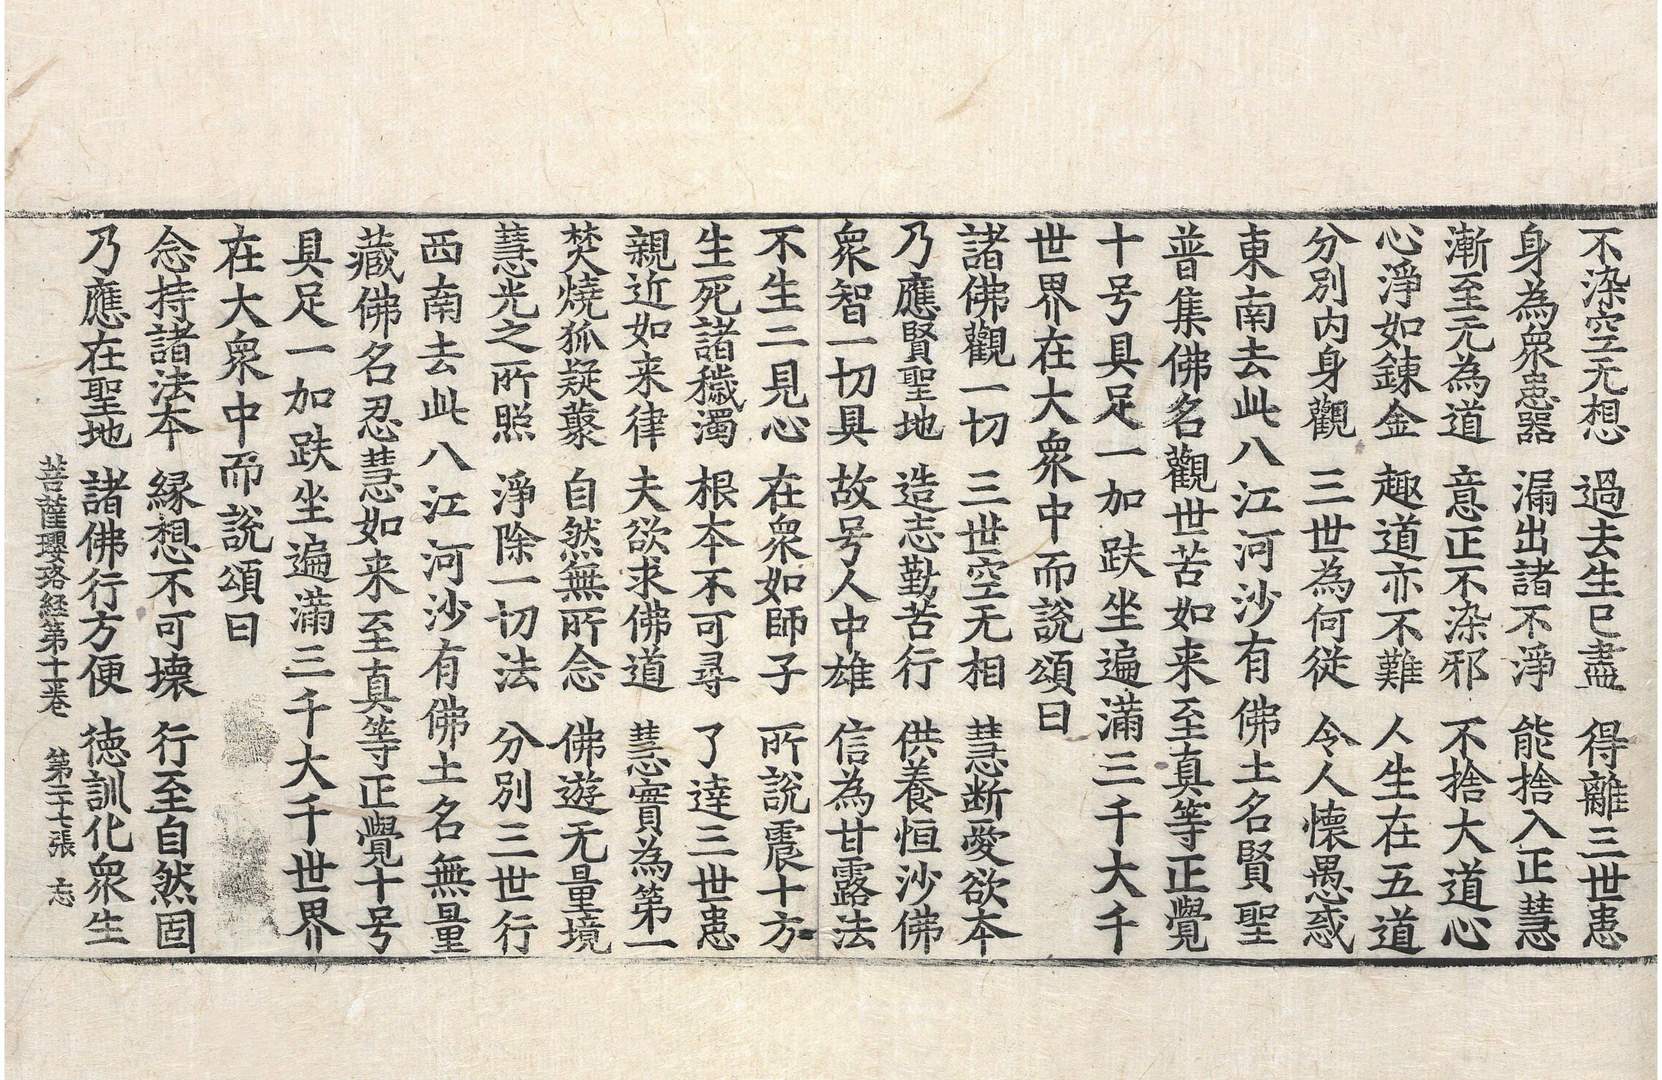 不染空无想 過去生已盡 得離三世患
身為衆患器 漏出諸不淨 能捨入正慧
漸至无為道 意正不染邪 不捨大道心
心淨如鍊金 趣道亦不難 人生在五道
分別內身觀 三世為何從 令人懐愚惑
東南去此八江河沙有佛土名賢聖
普集佛名觀世苦如来至真等正覺
十号具足一加趺坐遍滿三千大千
世界在大衆中而說頌曰
諸佛觀一切 三世空无相 慧断愛欲本
乃應賢聖地 造志勤苦行 供養恒沙佛
衆智一切具 故号人中雄 信為甘露法
不生二見心 在衆如師子 所說震十方
生死諸穢濁 根本不可尋 了達三世患
親近如来律 夫欲求佛道 慧寶為第一
焚燒狐疑藂 自然無所念 佛遊无量境
慧光之所照 淨除一切法 分別三世行
西南去此八江河沙有佛土名無量
藏佛名忍慧如来至真等正覺十号
具足一加趺坐遍滿三千大千世界
在大衆中而說頌曰
念持諸法本 緣想不可壞 行至自然固
乃應在聖地 諸佛行方便 徳訓化衆生
菩薩瓔珞経第十一卷 第二十七張 忘